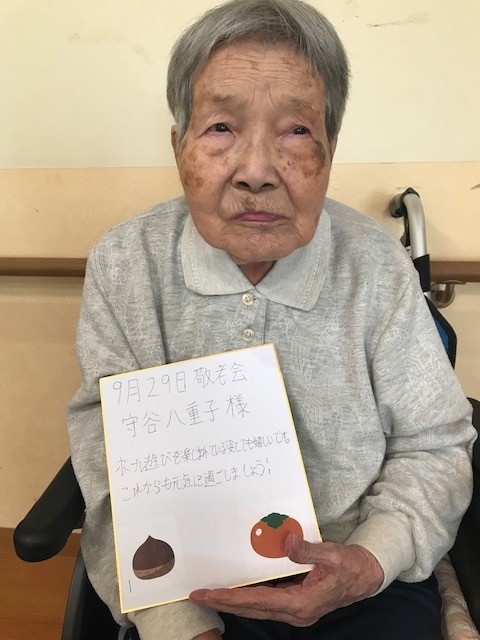 9月29日 敬老会
守谷八重子様
ボール遊びを楽しまれている姿とても嬉しいですね
これからも元気に過ごしましょう!